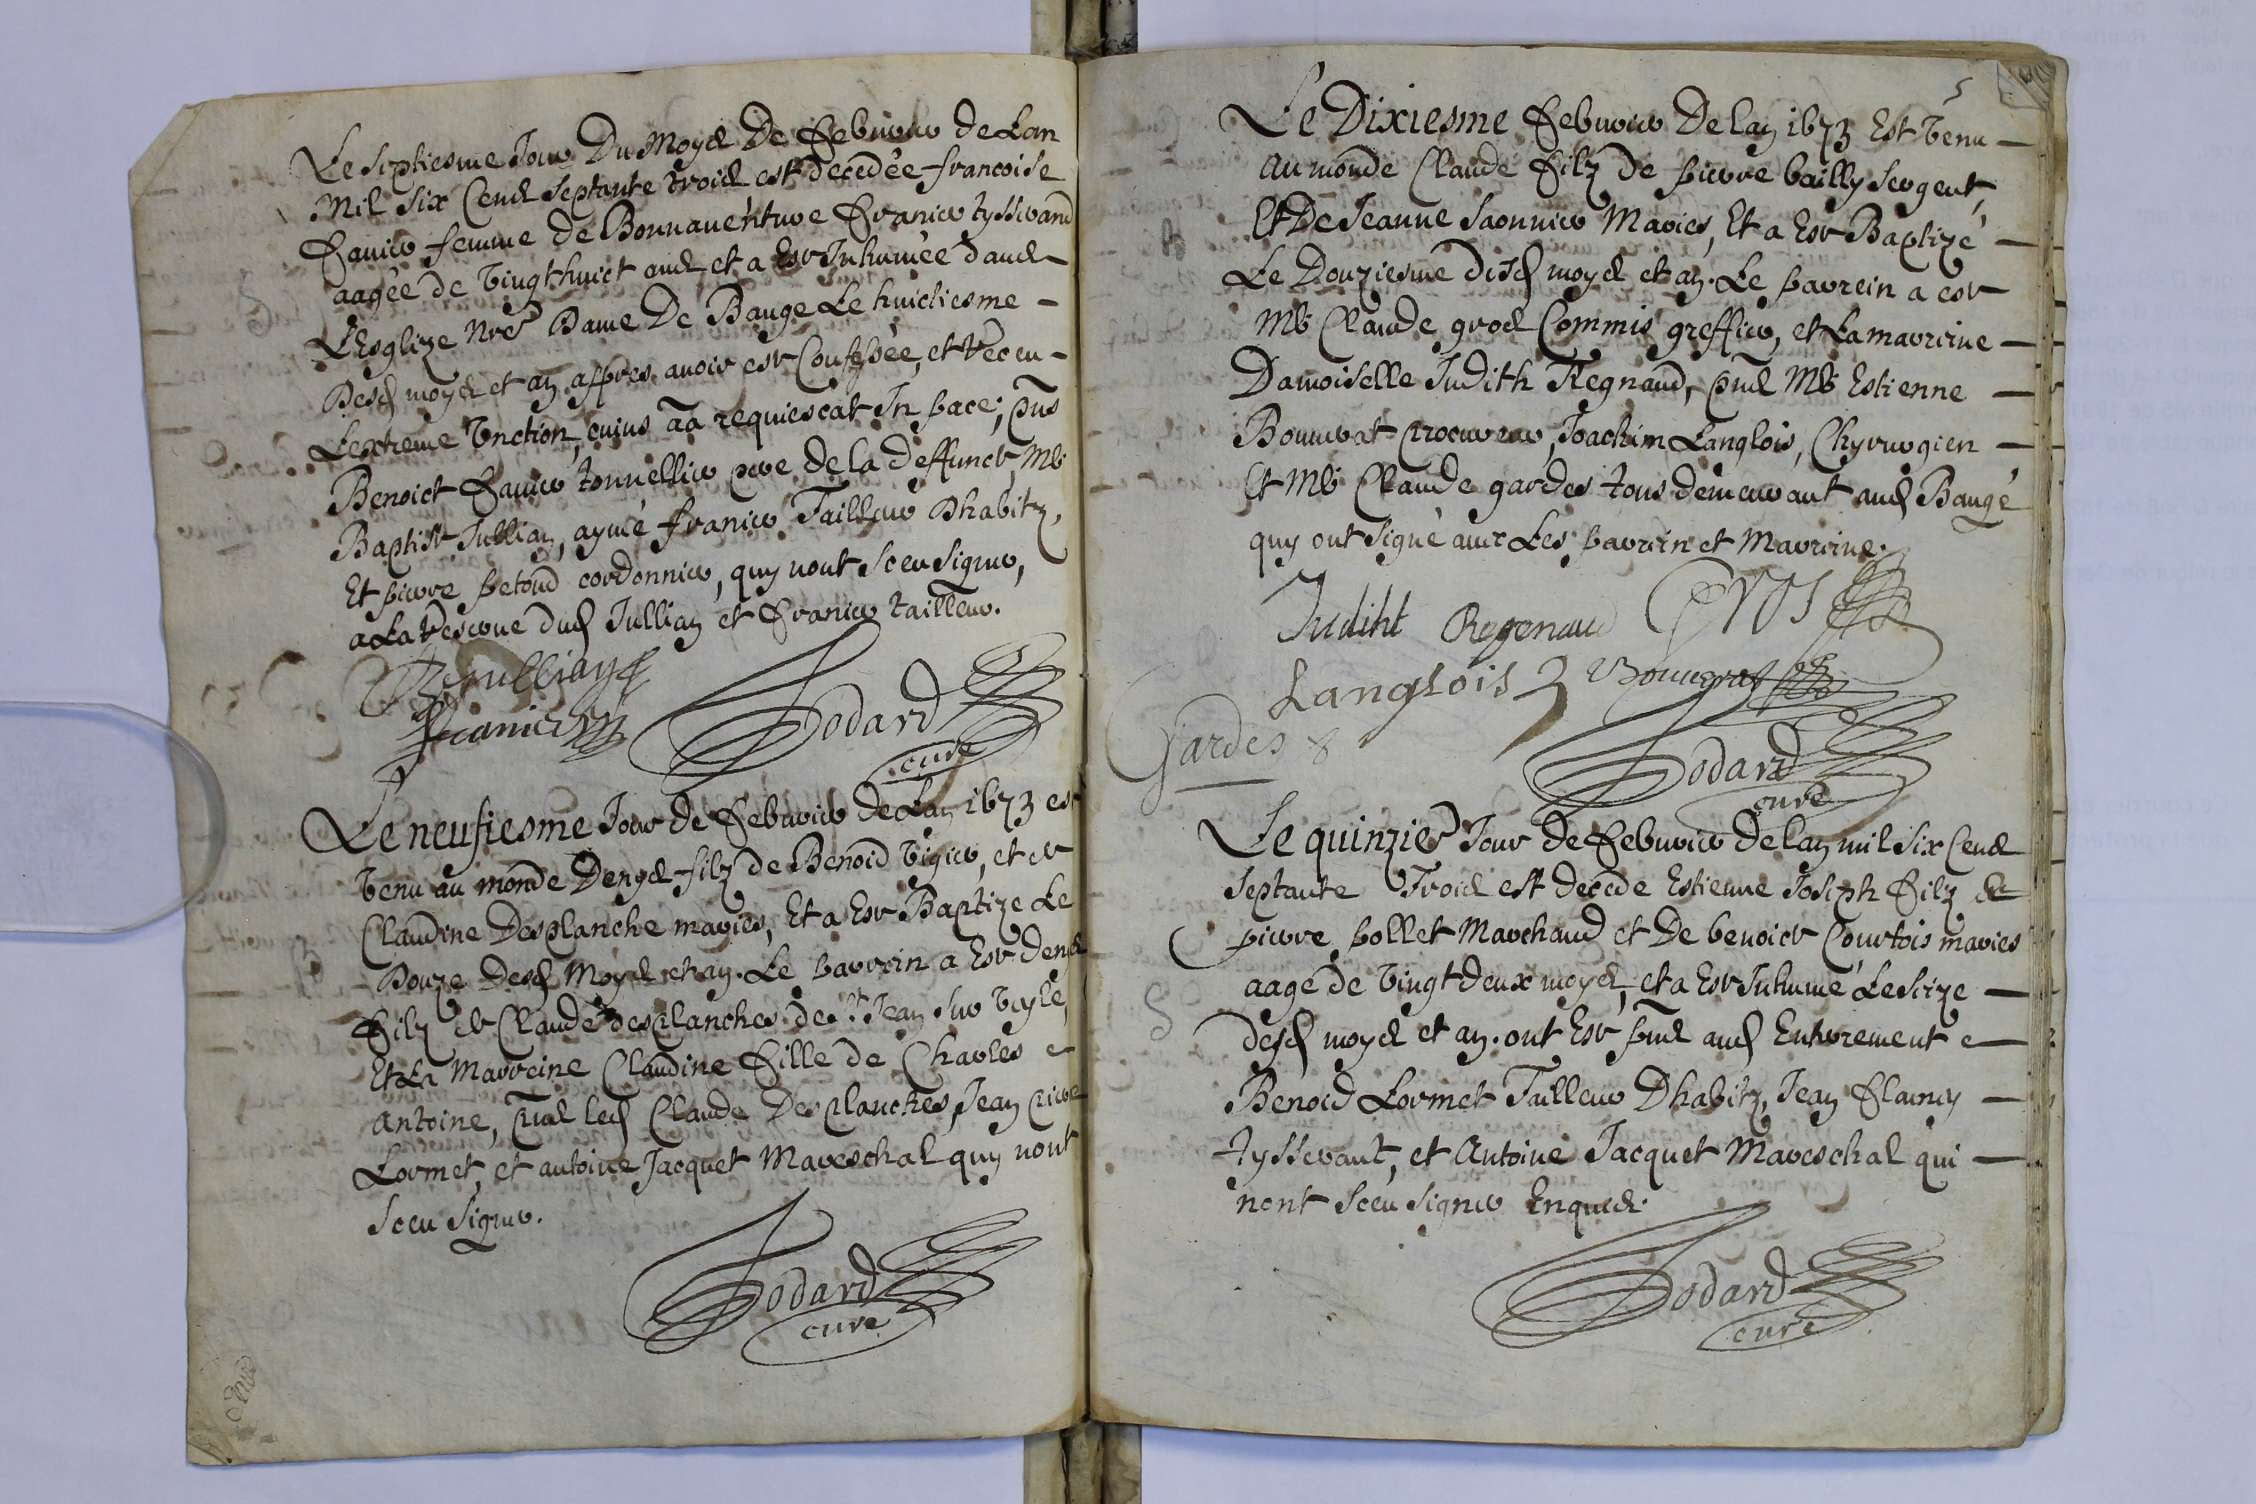 Le septiesme Jour Du Moys De febvrier de Lan
Mil six Cens septante trois est decedée francoise
Janier femme de Bonnaventure franier tysserand
aagée de Vingthuict ans et a Esté Inhumée dans
L'Esglize Nre Dame De Bauge Le huictiesme
Desd moys et an, appres avoir esté Confessée, et Receu
Lextreme Unction, cuius aa requiescat In pace; pns
Benoict Janier tonnellier pere de la deffuncte, Me
Baptiste Jullian, aymé franier Tailleur Dhabitz,
Et pierre petoud cordonnier, quy nont sceu signer,
a La Reserve dud Jullian et franier tailleur.
BJullian
franier
Godard
curé
Le neufiesme Jour de febvrier de Lan 1673 est
Venu au monde Denys filz de Benoid Vigier, et de
Claudine Desplanche mariés, Et a Esté Baptizé Le
Douze Desd Moys et an. Le parrein a Esté Denys
filz de Claude desplanches de St Jean sur Veyle,
Et La Marreine Claudine fille de Charles
antoine, pns led Claude Desplanches, Jean pierre
Lormet, et antoine Jacquet Mareschal quy nont
sceu signer.
Godard
curé
5
Le Dixiesme febvrier De lan 1673 Est Venu
au monde Claude filz de pierre bailly sergent,
Et De Jeanne saonnier Mariés, Et a Esté Baptizé
Le Douziesme disd moys et an. Le parrein a esté
B
Me Claude gros Commis greffier, et La marreine
Damoiselle Judith Regnaud, pns Me Estienne
Bouverat procureur, Joachim Langlois, Chyrurgien
Et Me Claude gardes tous demeurant aud Baugé
quy ont signé avec Les parrein et Marreine.
Judiht Regenaud Gros
Langlois Bouverat
Gardes
Godard
curé
Le quinzie Jour de febvrier De lan mil six Cens
septante Trois est decede Estienne Joseph filz de
pierre pollet Marchand et De benoiste Courtois mariés
aagé de Vingtdeux moys, et a Esté Inhumé Le seize
S
desd moys et an. ont Esté pns aud Enterrement
Benoid Lormet Tailleur Dhabitz, Jean flamy
tysserant, et Antoine Jacquet Mareschal qui
nont sceu signer Enquis.
Godard
curé